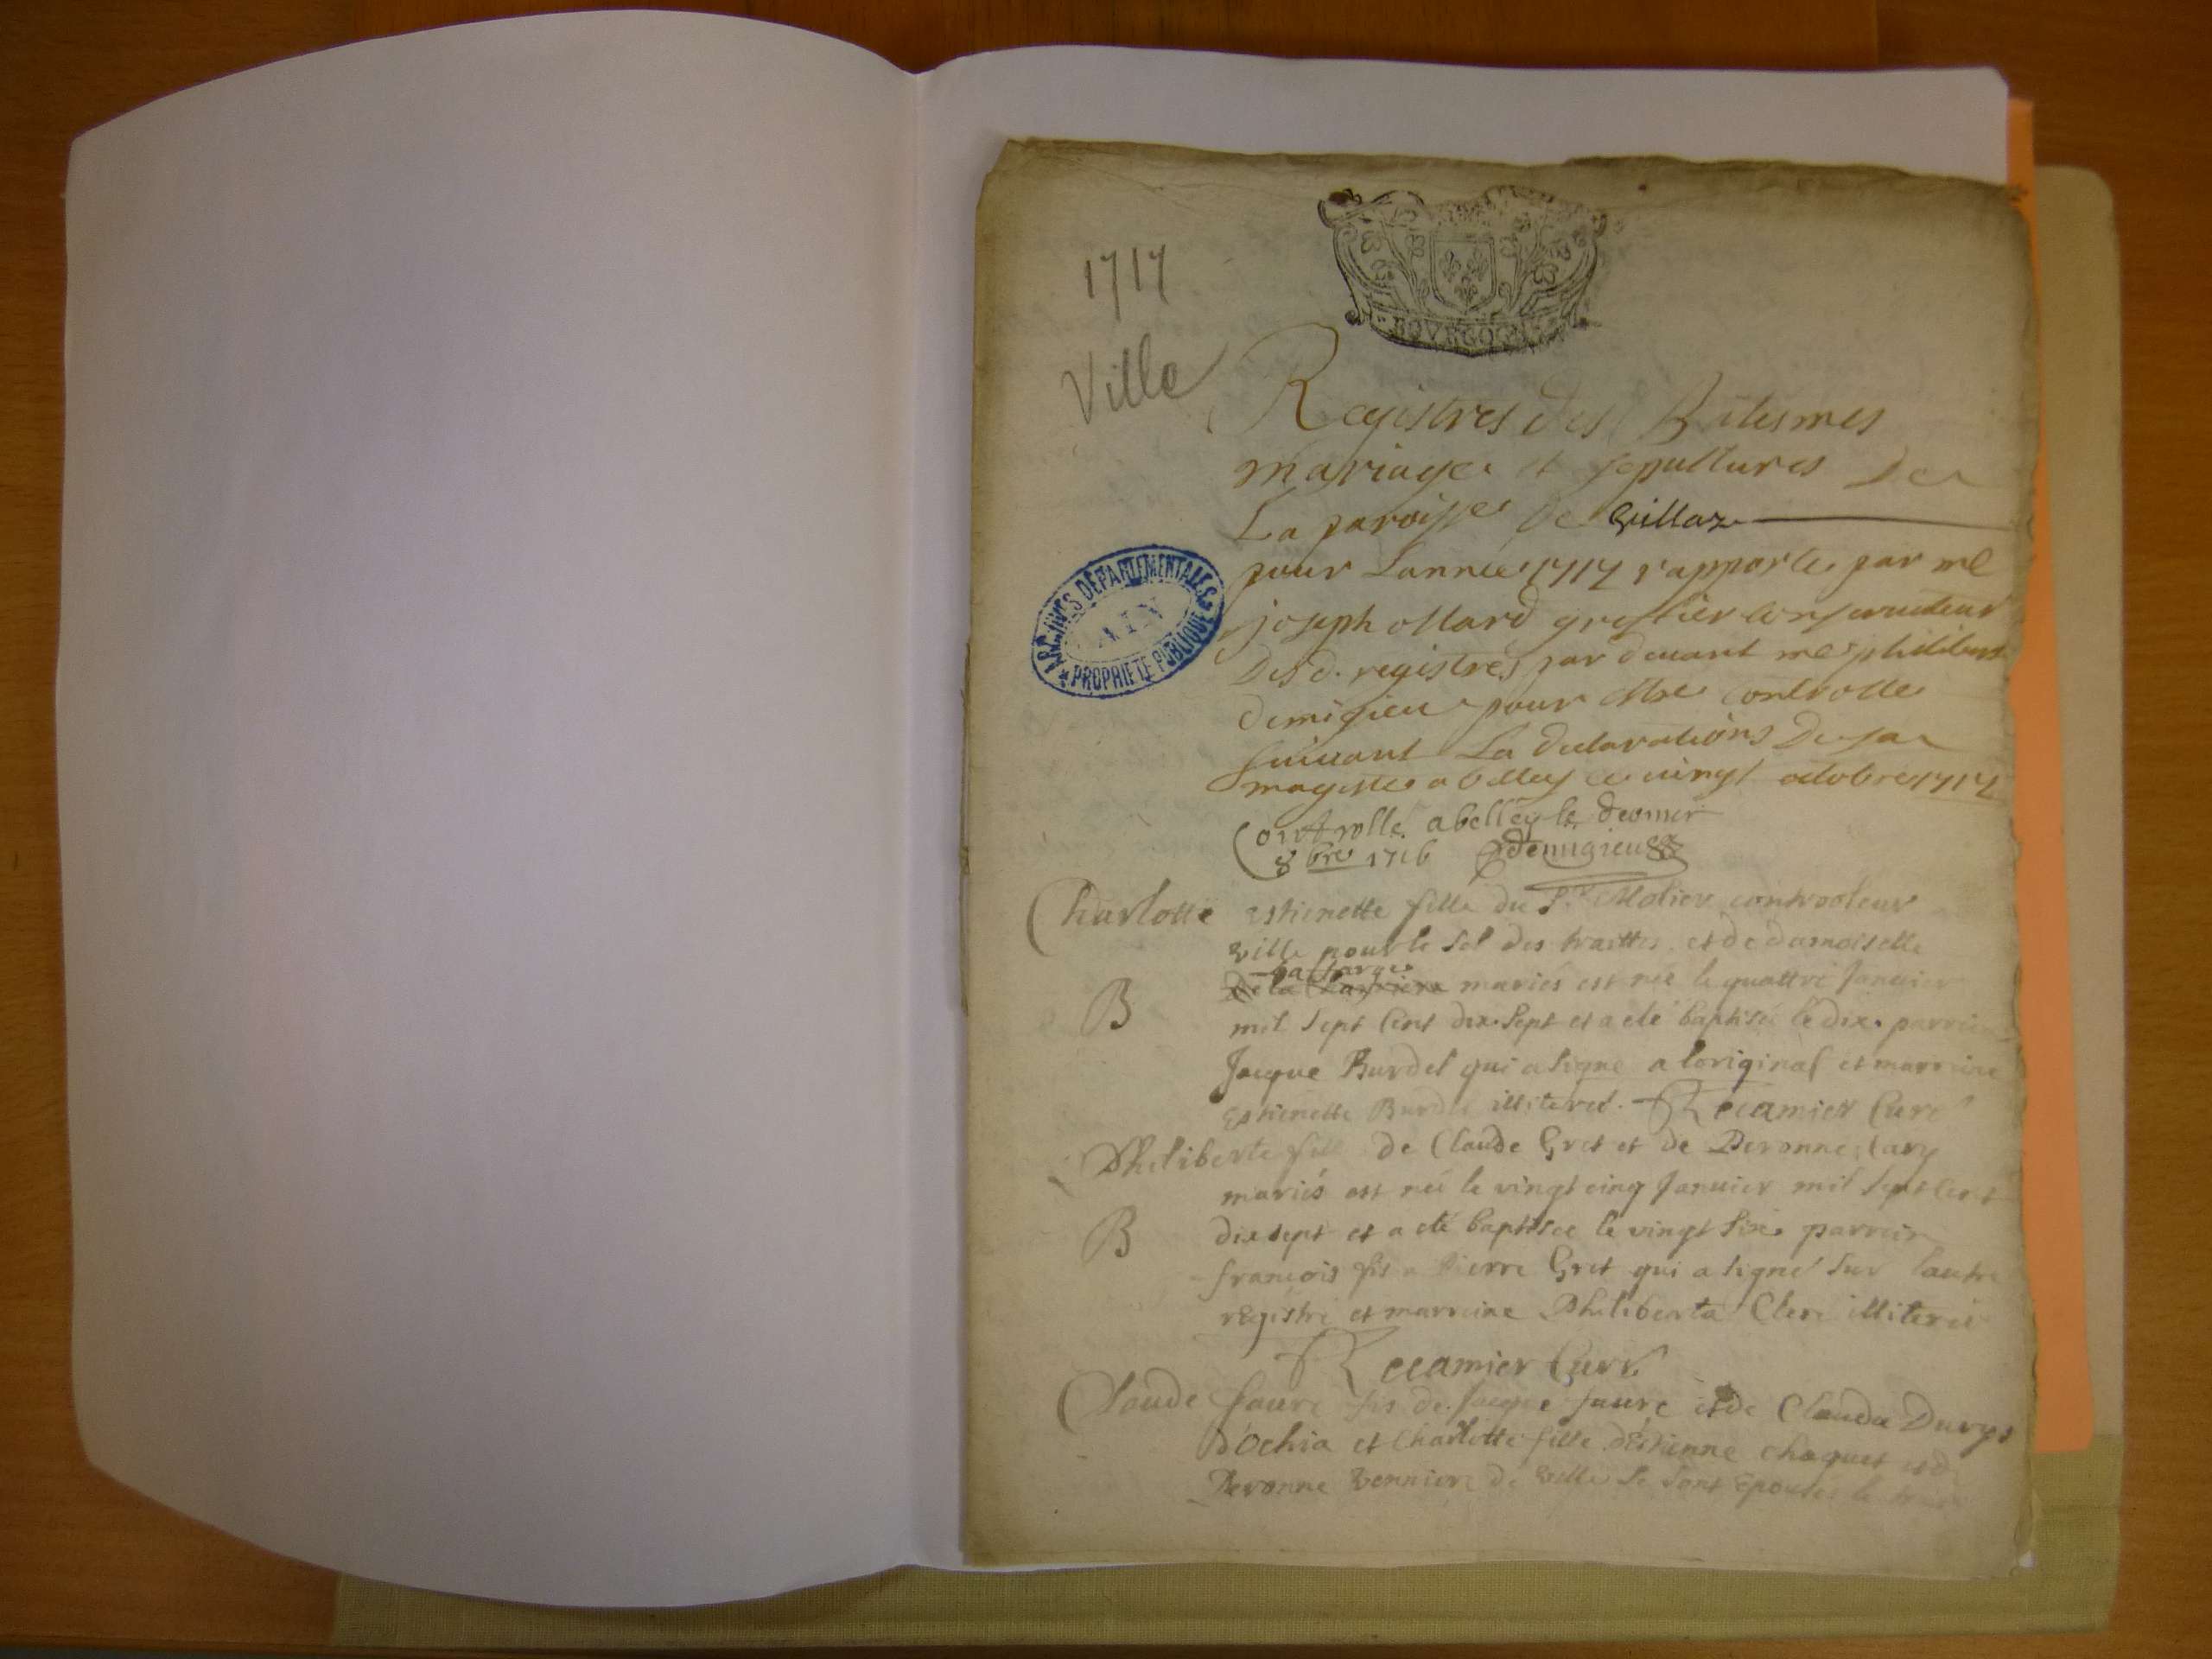 BOVRGOG
1717
Ville
Registres des Batesmes
mariages et sepultures De
La paroisse de Villaz
pour Lannée 1717 rapporte par me
joseph ollard greffier conservateur
Des d. registres par devant me philibert
demigieu pour estre controlle
suivant La declarations De sa
magestes a belley ce vingt octobre 1717
ARCHIVES DÉPARTEMENTALES
AIN
PROPRIÉTÉ PUBLIQUE
Controllé a belley le dernier
8bre 1716 Demigieu
Charlotte estienette fille du Sr Molier controoleur
ville pour le sel des traittes et de damoiselle
La farge
De la mariés est née le quattre Janvier
B
mil sept cent dix sept et a eté baptisé le dix. parrain
Jacque Burdel qui a signé a loriginal et marreine
Estienette Burdel illiteree. Recamier Curé
Philiberte fille de Claude Gret et de Peronne Lary
mariés est née le vingt cinq Janvier mil sept cent
B
dix sept et a eté baptisée le vingt six. parrein
francois fis a Pierre Gret qui a signé sur lautre
registre et marreine Philiberta Clerc illiteree
Recamier Curé
Claude faure fis de Jacque faure et de Clauda Durys
d'ochia et Charlotte fille d'Estienne choquet et de
Peronne Venniere de ville se sont epousés le